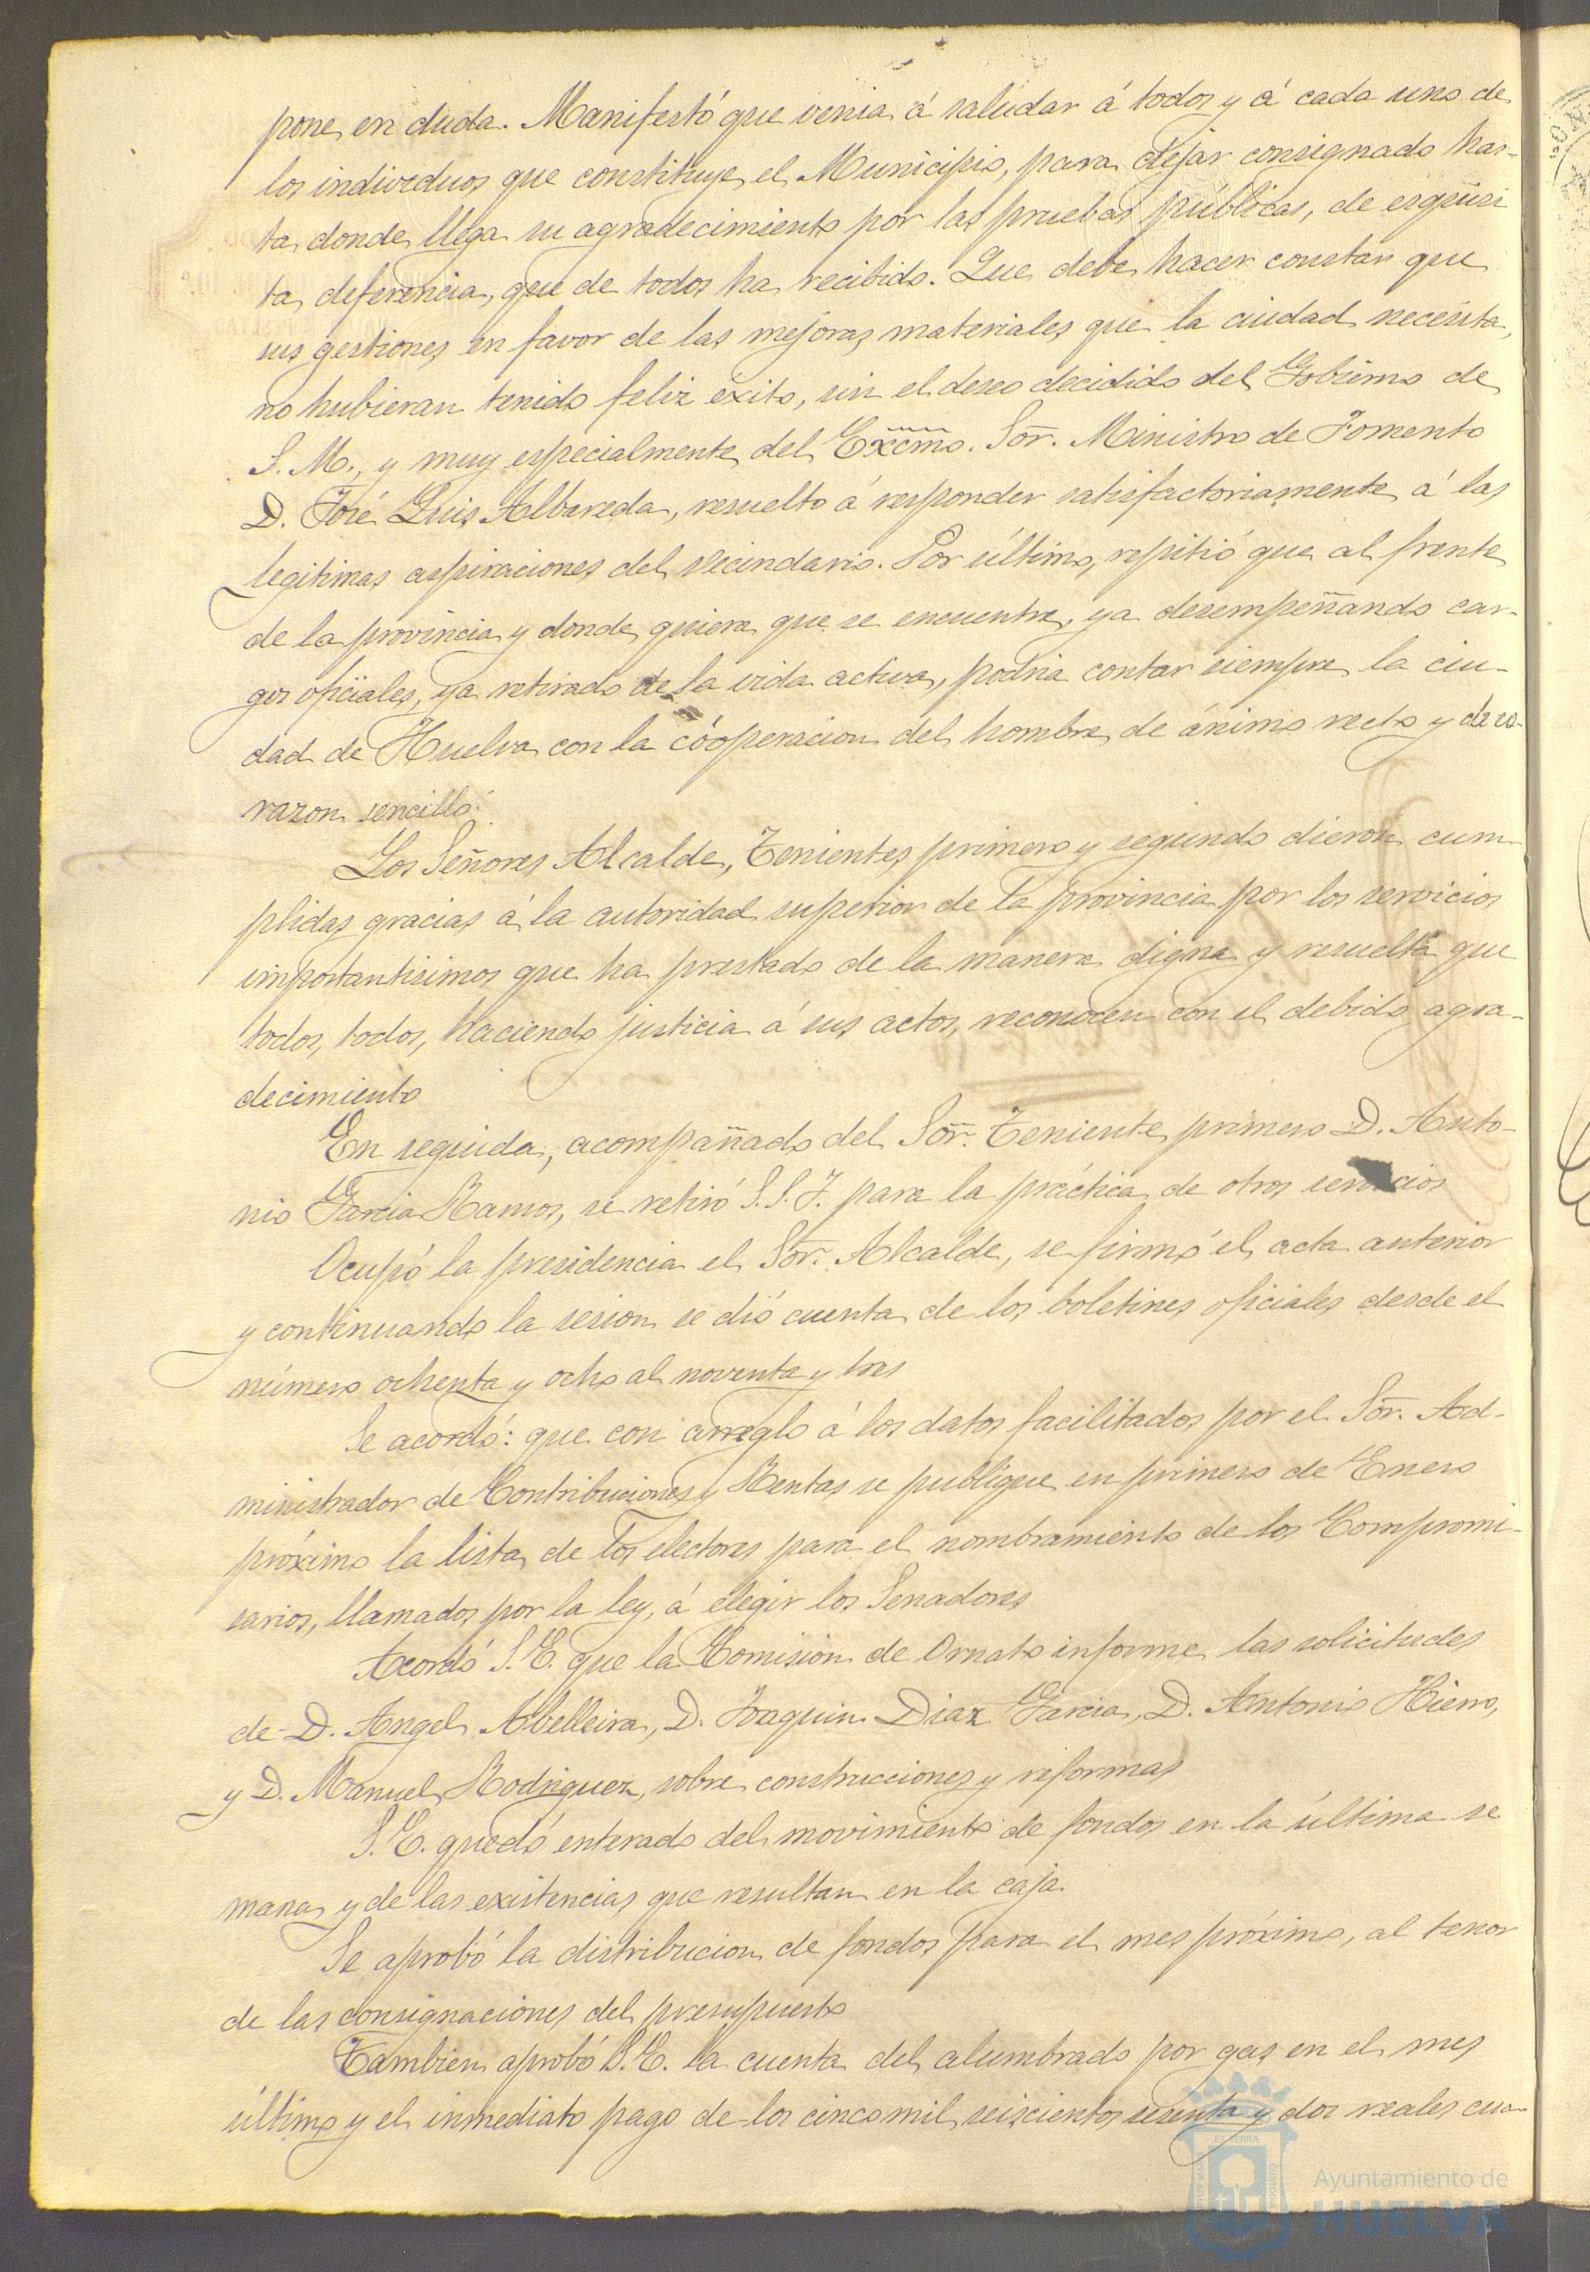 pone en duda. Manifestó que venia á saludar á todos y á cada uno de
los individuos que constituye el Municipio, para dejar consignado has-
ta donde llega su agradecimiento por las pruebas públicas, de esquisi
ta deferencia, que de todos ha recibido. Que debe hacer constar que
sus gestiones en favor de las mejoras materiales que la ciudad necesita,
no hubieran tenido feliz exito, sin el deseo decidido del Gobierno de
S. M., y muy especialmente del Excmo. Sor. Ministro de Fomento
D. José Luis Albareda, resuelto á responder satisfactoriamente á las
legitimas aspiraciones del vecindario. Por último, repitió que al frente
de la provincia y donde quiera que se encuentre, ya desempeñando car-
gos oficiales, ya retirado de la vida activa, podria contar siempre la ciu-
dad de Huelva con la cóoperacion del hombre de ánimo recto y de co-
razon sencillo.
Los Señores Alcalde, Tenientes primero y segundo dieron cum-
plidas gracias á la autoridad superior de la provincia por los servicios
importantisimos que ha prestado de la manera digna y resuelta que
todos, todos, haciendo justicia á sus actos, reconocen con el debido agra-
decimiento
En seguida, acompañado del Sor. Teniente primero D. Anto-
nio Garcia Ramos, se retiró S. S. I. para la práctica de otros servicios
Ocupó la presidencia el Sor. Alcalde, se firmó el acta anterior
y continuando la sesion se dió cuenta de los boletines oficiales desde el
número ochenta y ocho al noventa y tres
Se acordó: que con arreglo á los datos facilitados por el Sor. Ad-
ministrador de Contribuciones y Rentas se publique en primero de Enero
próximo la lista de los electores para el nombramiento de los Compromi-
sarios, llamados por la ley, á elegir los Senadores
Acordó S. E. que la Comision de Ornato informe las solicitudes
de D. Angel Abelleira, D. Joaquin Diaz Garcia, D. Antonio Hierro,
y D. Manuel Rodriguez, sobre construcciones y reformas
S. E. quedó enterado del movimiento de fondos en la última se
mana y de las existencias que resultan en la caja.
Se aprobó la distribucion de fondos para el mes próximo, al tenor
de las consignaciones del presupuesto
Tambien aprobó S. E. la cuenta del alumbrado por gas en el mes
último y el inmediato pago de los cinco mil seiscientos sesenta y dos reales cua-
Ayuntamiento de
HUELVA